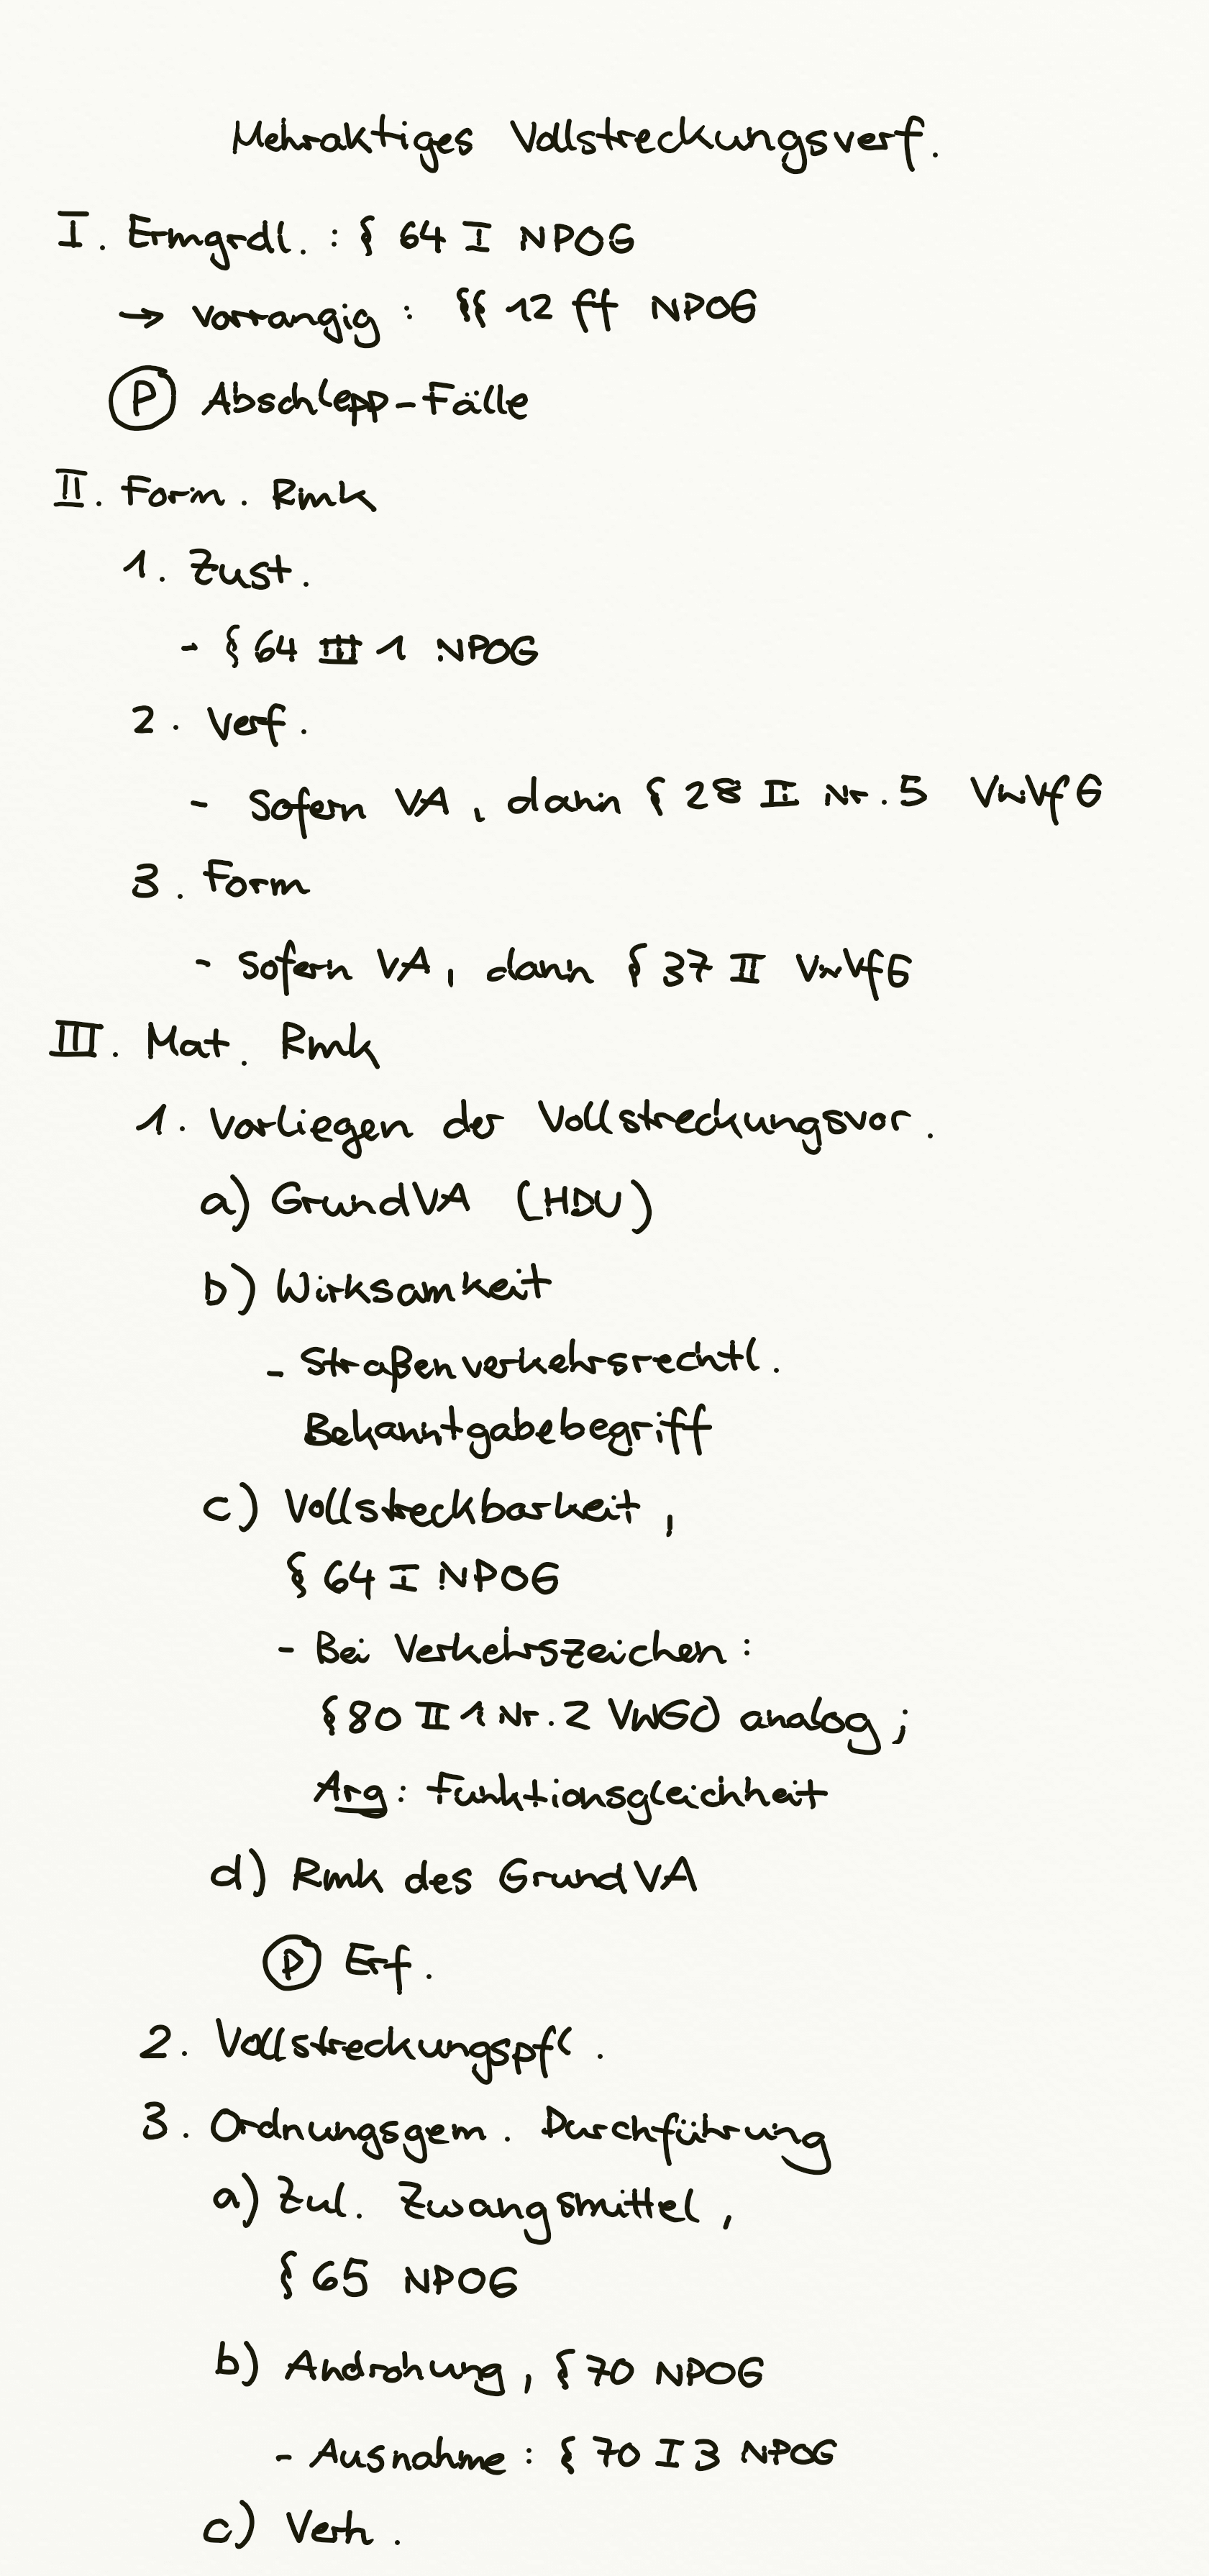 Mehraktiges Vollstreckungsverf.
I. Ermgrdl. : § 64 I NPOG
→ vorrangig : §§ 12 ff NPOG
Ⓟ Abschlepp-Fälle
II. Form. Rmk
1. Zust.
- § 64 III 1 NPOG
2. Verf.
- Sofern VA, dann § 28 II Nr. 5 VwVfG
3. Form
- Sofern VA, dann § 37 II VwVfG
III. Mat. Rmk
1. Vorliegen der Vollstreckungsvor.
a) GrundVA (HDU)
b) Wirksamkeit
- Straßenverkehrsrechtl.
Bekanntgabebegriff
c) Vollstreckbarkeit,
§ 64 I NPOG
- Bei Verkehrszeichen :
§ 80 II 1 Nr. 2 VwGO analog ;
Arg : Funktionsgleichheit
d) Rmk des GrundVA
Ⓟ Erf.
2. Vollstreckungspfl.
3. Ordnungsgem. Durchführung
a) Zul. Zwangsmittel,
§ 65 NPOG
b) Androhung, § 70 NPOG
- Ausnahme : § 70 I 3 NPOG
c) Verh.